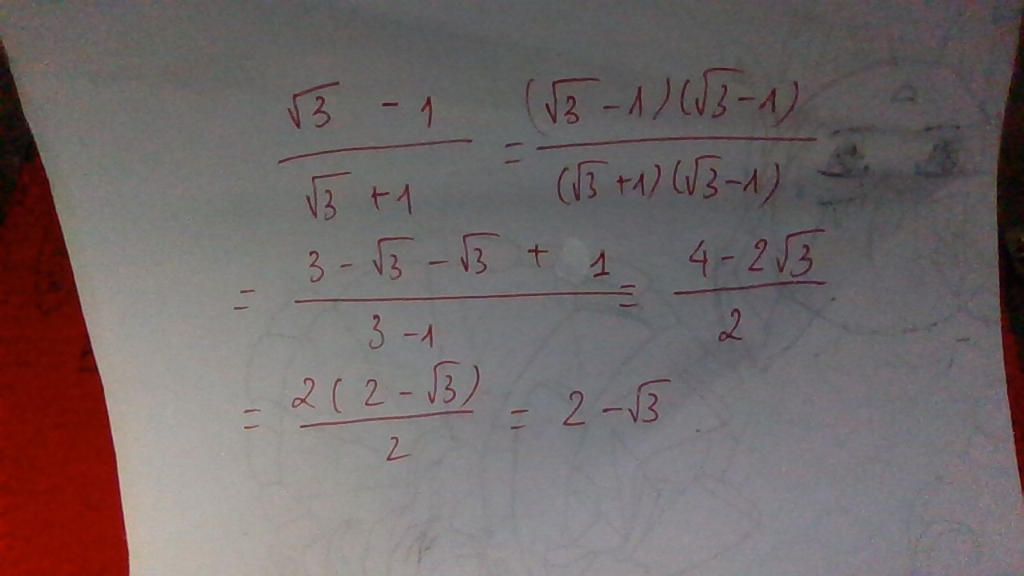 √3 - 1 / √3 + 1 = (√3 - 1)(√3 - 1) / (√3 + 1)(√3 - 1)
= 3 - √3 - √3 + 1 / 3 - 1 = 4 - 2√3 / 2
= 2(2 - √3) / 2 = 2 - √3